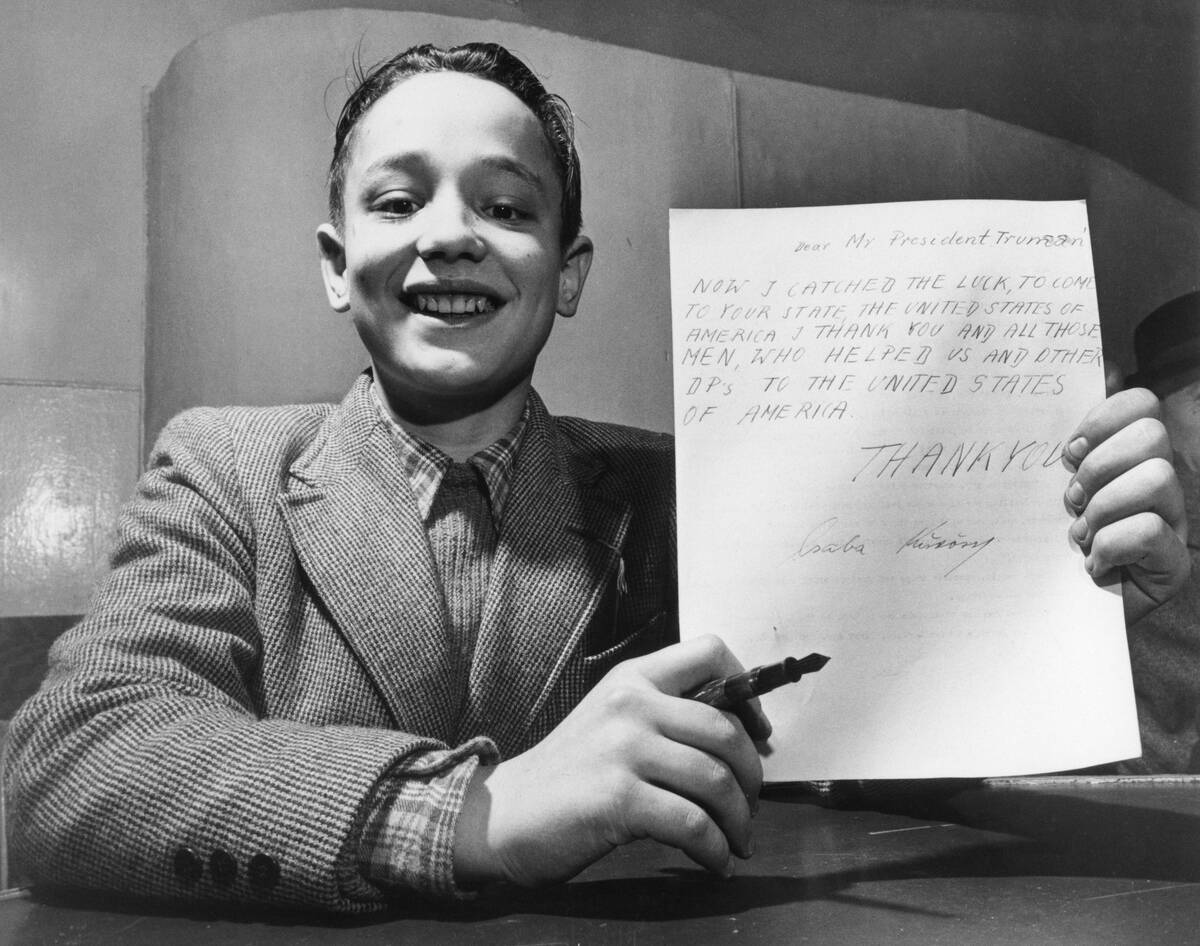 Dear Mr President Truman
NOW I CATCHED THE LUCK, TO COME
TO YOUR STATE, THE UNITED STATES OF
AMERICA I THANK YOU AND ALL THOSE
MEN, WHO HELPED US AND OTHER
DP's TO THE UNITED STATES
OF AMERICA.
THANK YOU
Csaba